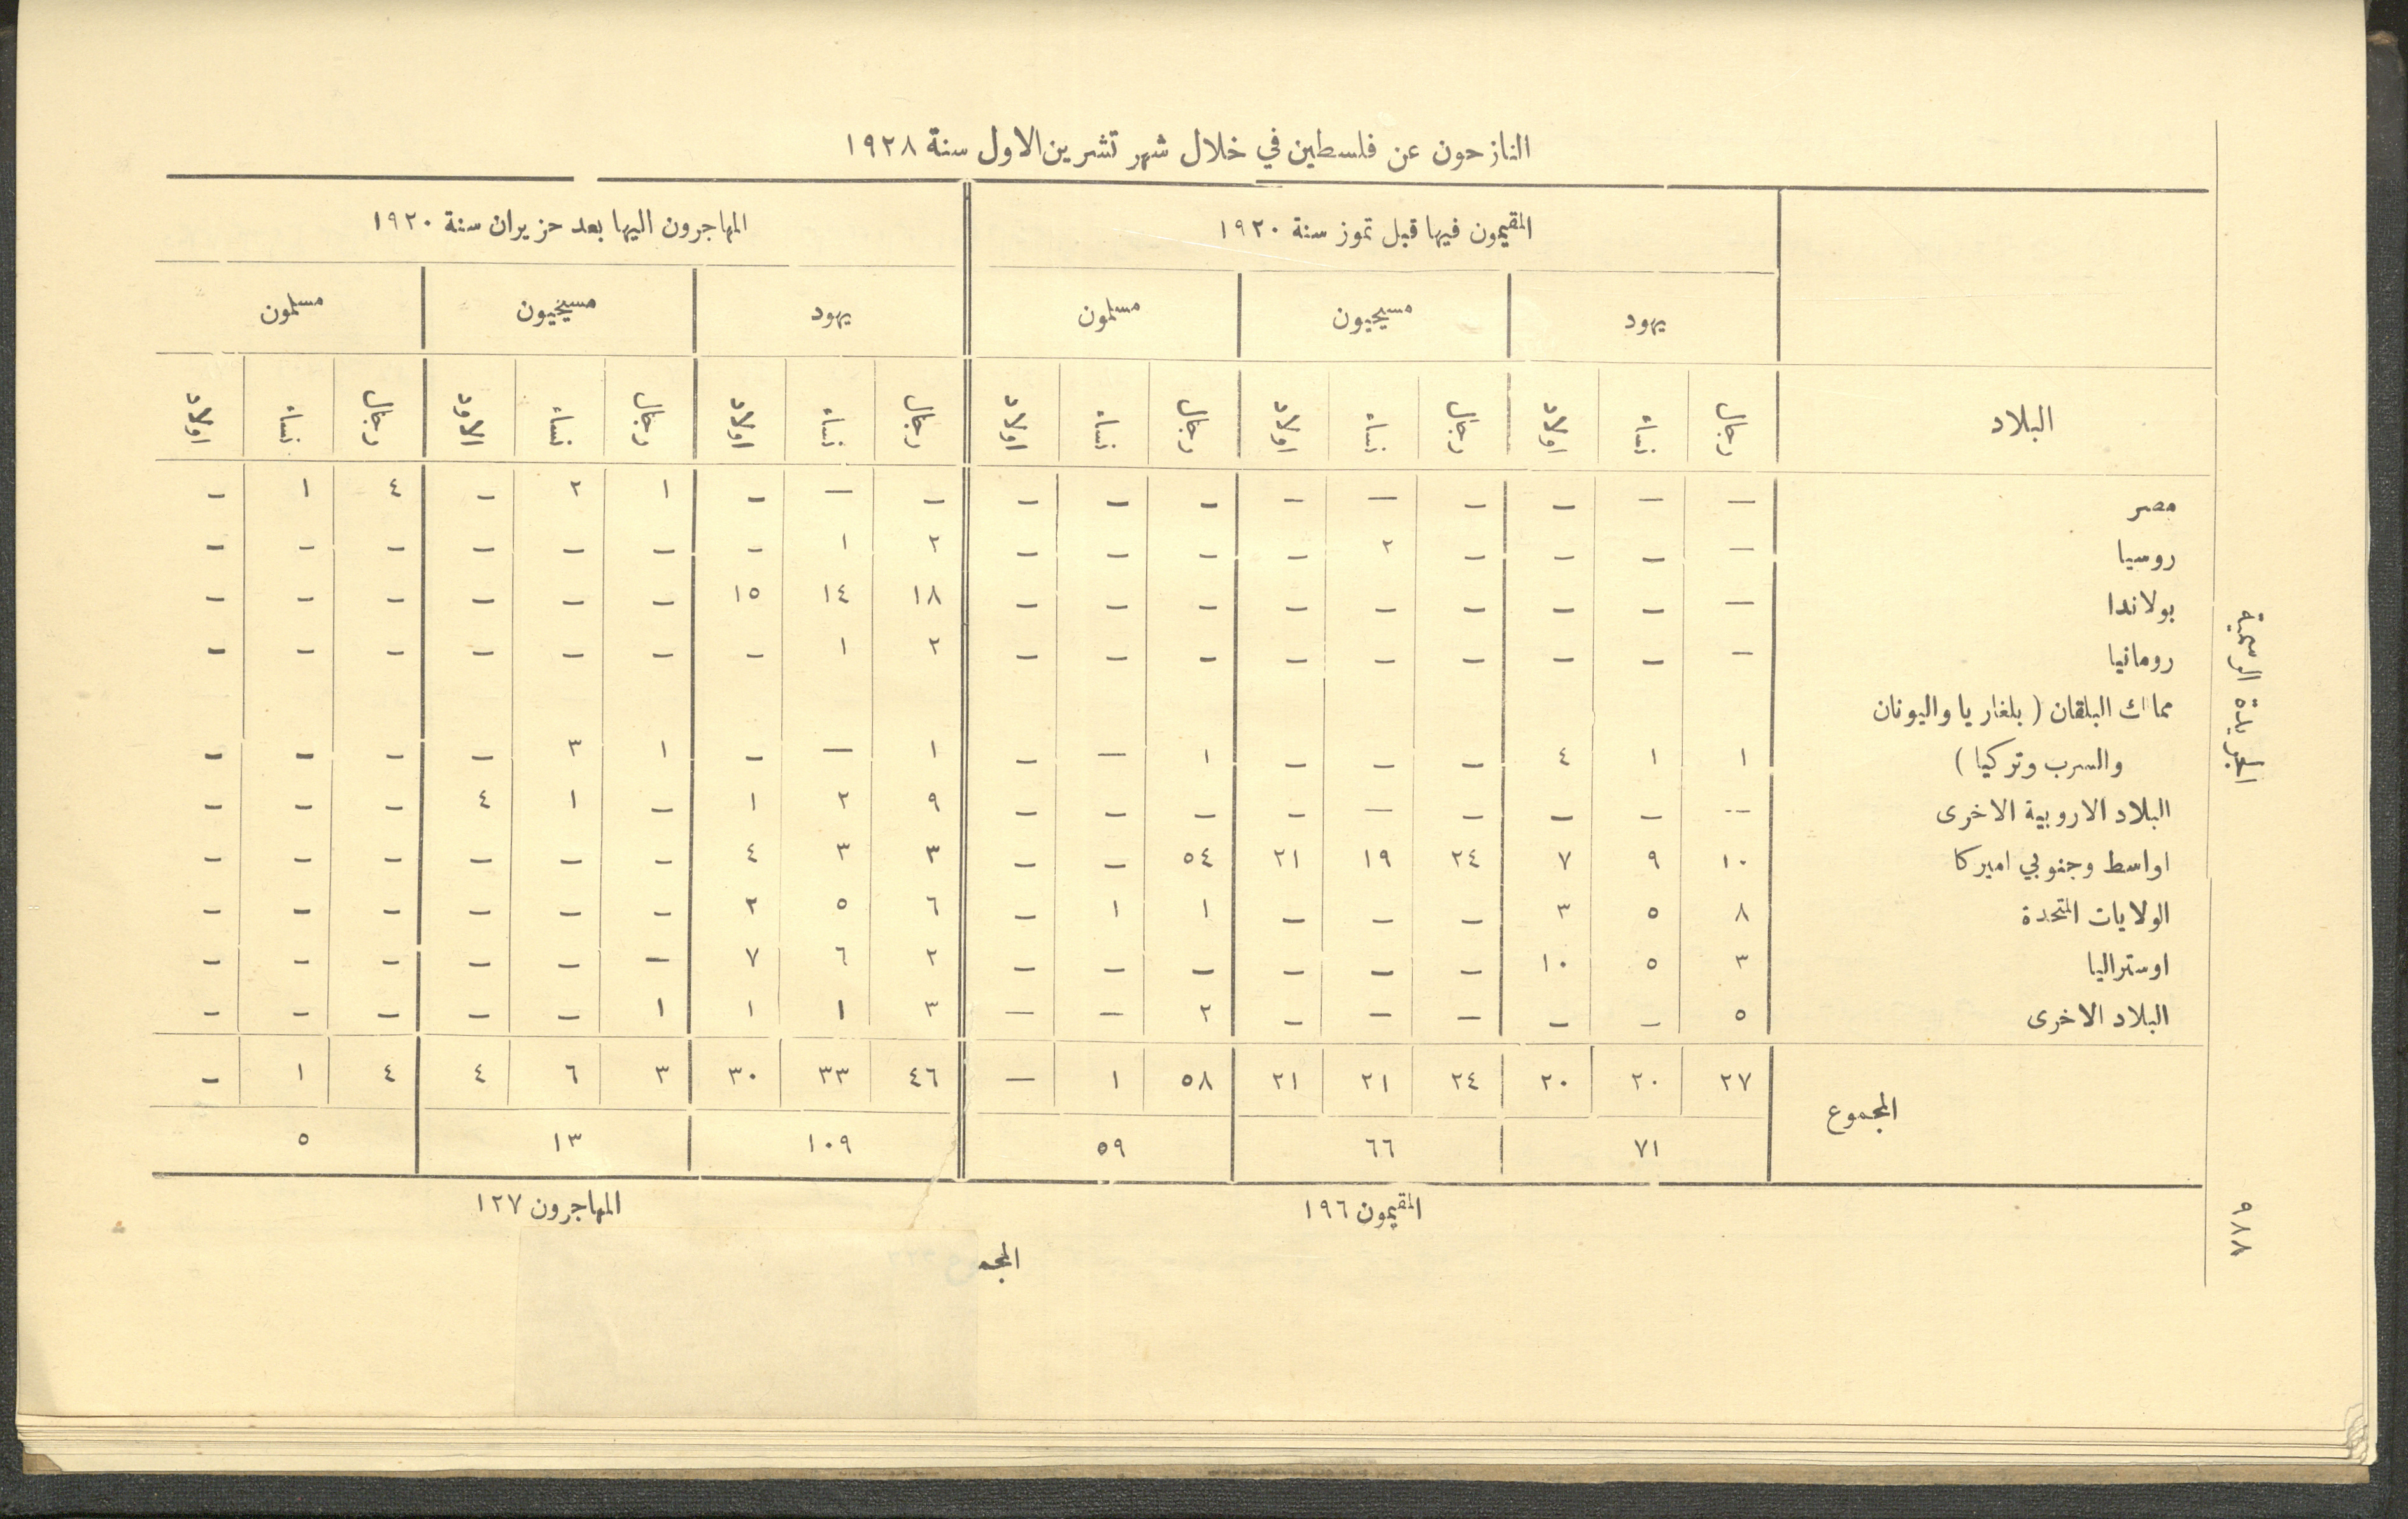 النازحون عن فلسطين في خلال شهر تشرين الاول سنة ١٩٢٨
المقيمون فيها قبل تموز سنة ١٩٢٠ المهاجرون اليها بعد حزيران سنة ١٩٢٠
يهود مسيحيون مسلمون يهود مسيحيون مسلمون
البلاد رجال نساء اولاد رجال نساء اولاد رجال نساء اولاد رجال نساء اولاد رجال نساء الاود رجال نساء اولاد
مصر — — — — — — — — — — — — ١ ٢ — ٤ ١ —
روسيا — — — — ٢ — — — — ٢ ١ — — — — — — —
بولاندا — — — — — — — — — ١٨ ١٤ ١٥ — — — — — —
رومانيا — — — — — — — — — ٢ ١ — — — — — — —
مماك البلقان ( بلغاريا واليونان
والسرب وتركيا ) ١ ١ ٤ — — — ١ — — ١ — — ١ ٣ — — — —
البلاد الاروبية الاخرى — — — — — — — — — ٩ ٢ ١ — ١ ٤ — — —
اواسط وجنوبي اميركا ١٠ ٩ ٧ ٢٤ ١٩ ٢١ ٥٤ — — ٣ ٣ ٤ — — — — — —
الولايات المتحدة ٨ ٥ ٣ — — — ١ ١ — ٦ ٥ ٢ — — — — — —
اوستراليا ٣ ٥ ١٠ — — — — — — ٢ ٦ ٧ — — — — — —
البلاد الاخرى ٥ — — — — — ٢ — — ٣ ١ ١ ١ — — — — —
المجموع ٢٧ ٢٠ ٢٠ ٢٤ ٢١ ٢١ ٥٨ ١ — ٤٦ ٣٣ ٣٠ ٣ ٦ ٤ ٤ ١ —
٧١ ٦٦ ٥٩ ١٠٩ ١٣ ٥
المقيمون ١٩٦ المهاجرون ١٢٧
المجم
الجريدة الرسمية
٩٨٨